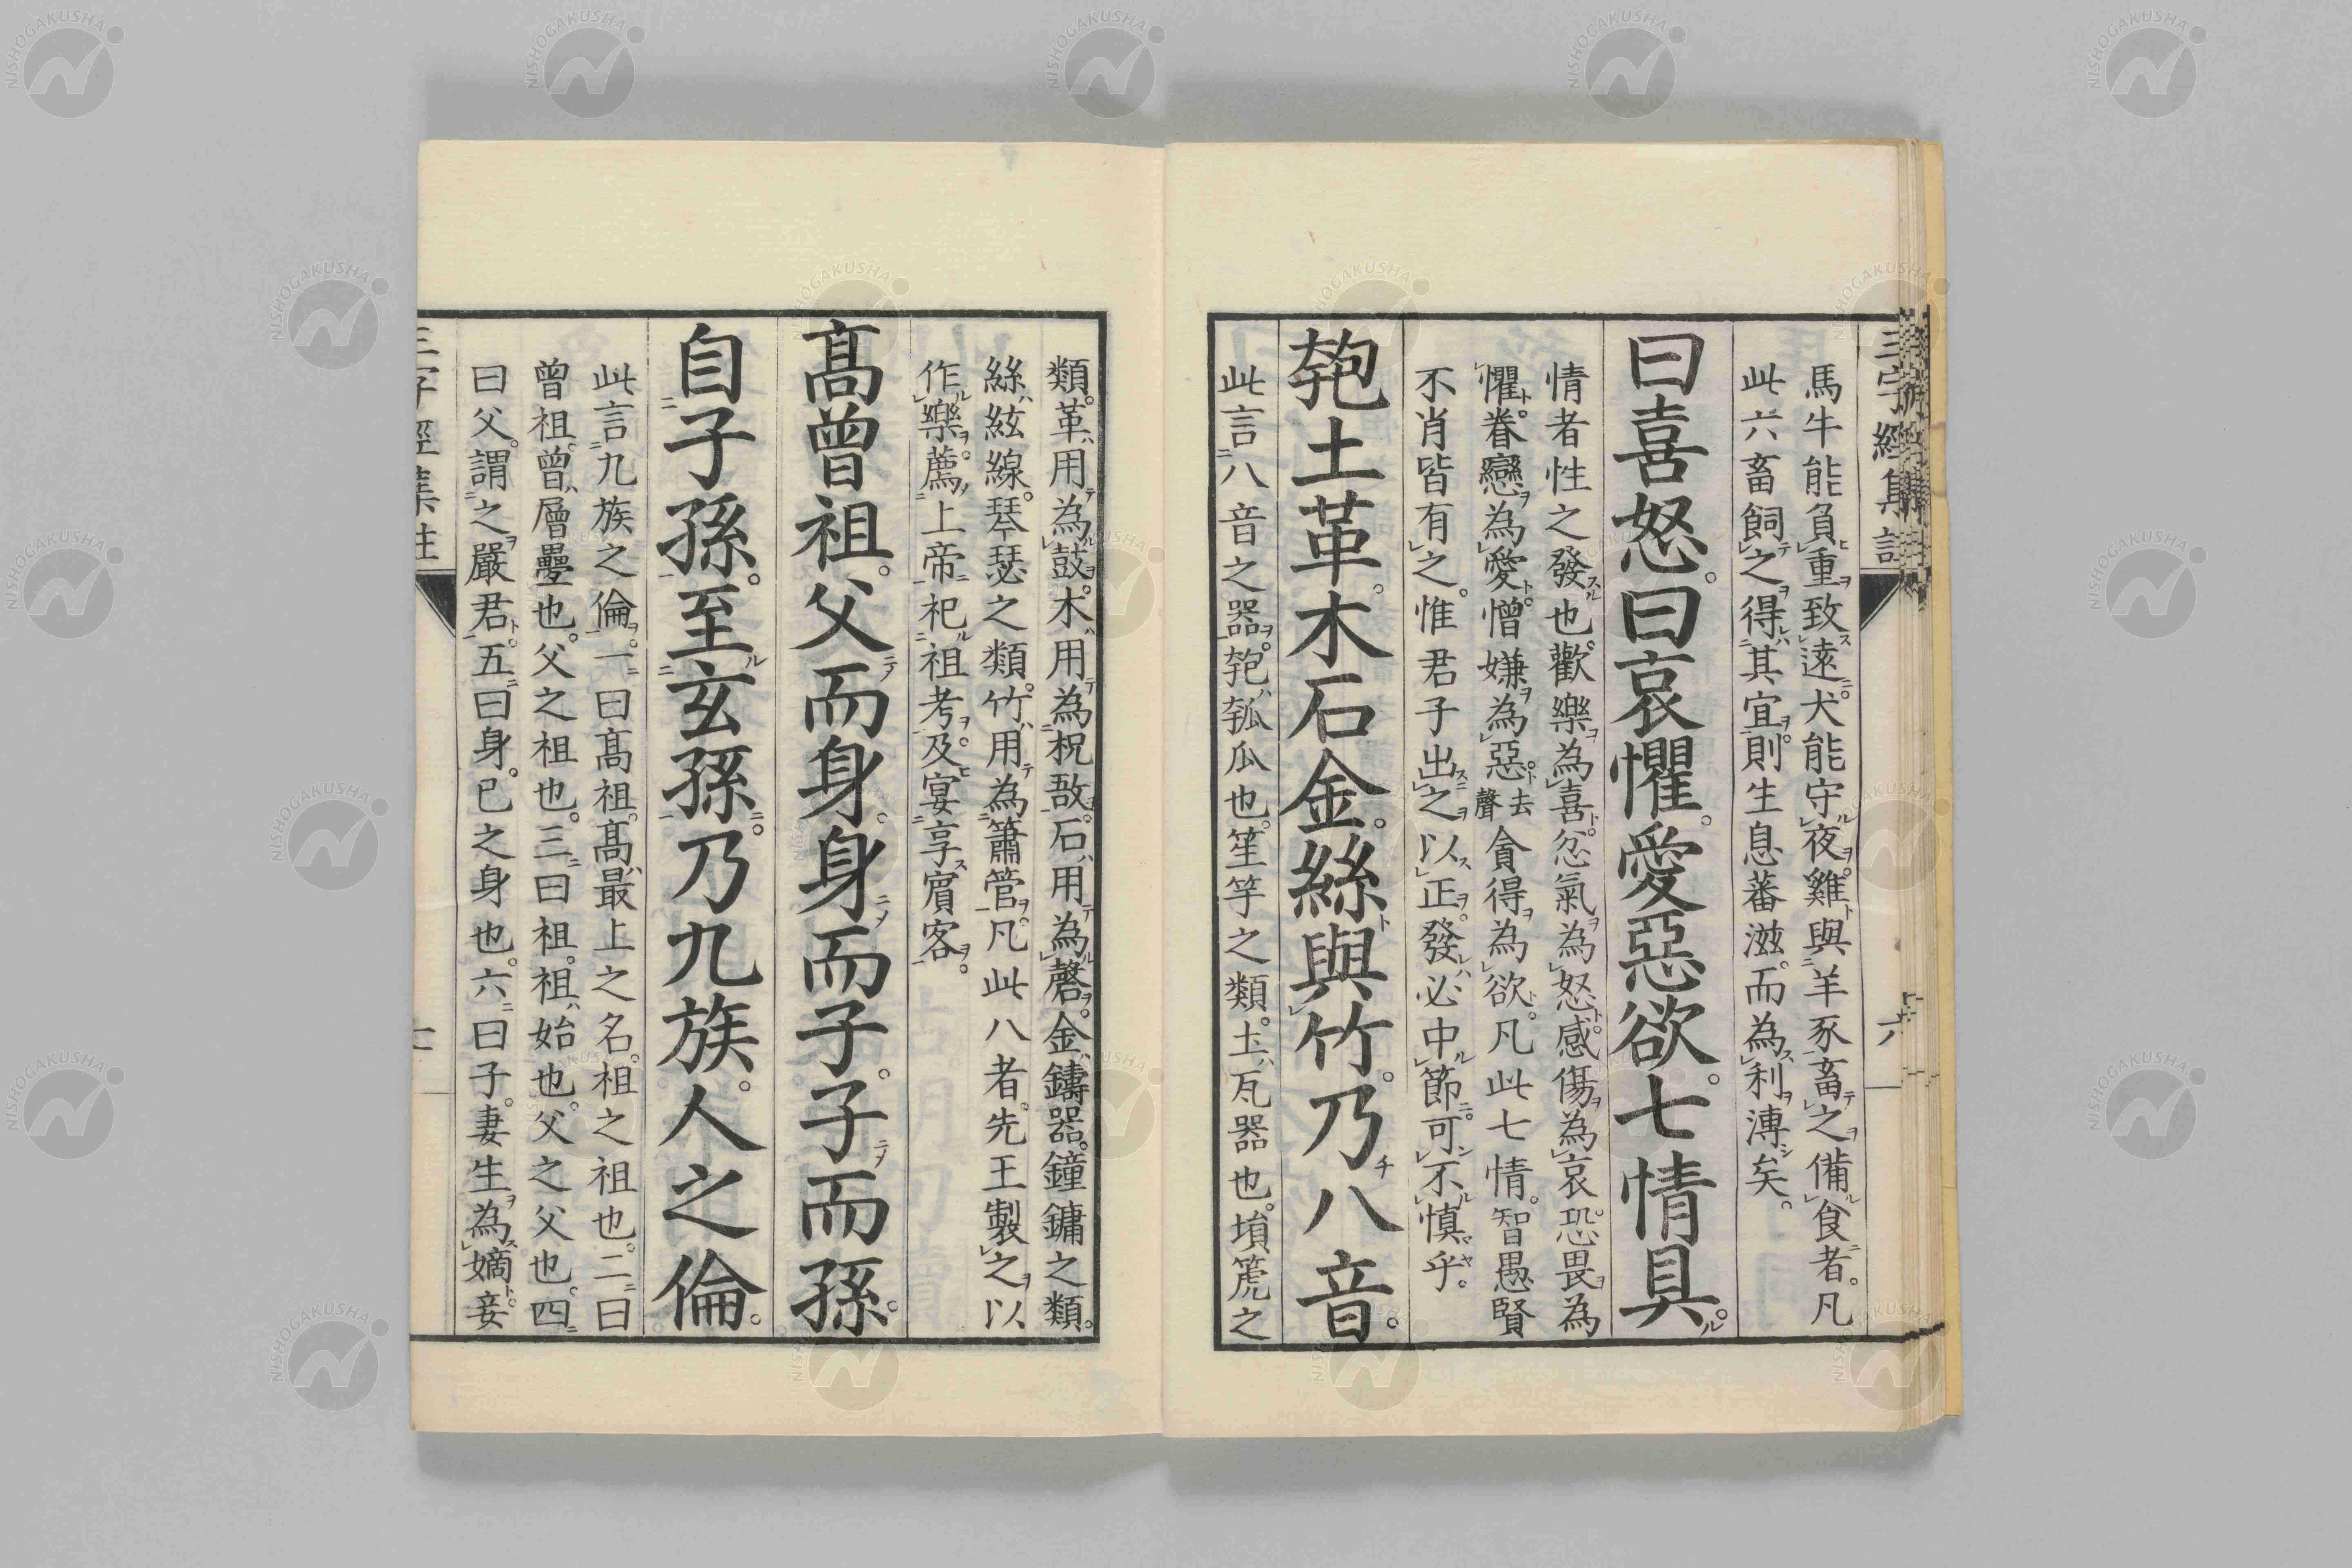 馬牛能負重致遠。犬能守夜。雞與羊豕畜之備食者。凡
此六畜飼之得其宜。則生息蕃滋。而為利溥矣。
曰喜怒。曰哀懼。愛惡欲。七情具。
情者性之發也。歡樂為喜。忿氣為怒。感傷為哀。恐畏為
懼。眷戀為愛。憎嫌為惡。去聲貪得為欲。凡此七情。智愚賢
不肖皆有之。惟君子出之以正。發必中節。可不慎乎。
匏土革。木石金。絲與竹。乃八音。
此言八音之器。匏瓠瓜也。笙竽之類。土瓦器也。塤篪之
類。革用為鼓。木用為柷敔。石用為磬。金鑄器。鐘鏞之類。
絲絃線。琴瑟之類。竹用為簫管。凡此八者。先王製之以
作樂。薦上帝祀祖考。及宴享賓客。
髙曾祖。父而身。身而子。子而孫。
自子孫。至玄孫。乃九族。人之倫。
此言九族之倫。一曰髙祖。髙最上之名。祖之祖也。二曰
曾祖。曾層疊也。父之祖也。三曰祖。祖始也。父之父也。四
曰父。謂之嚴君。五曰身。己之身也。六曰子。妻生為嫡。妾
NISHOGAKUSHA